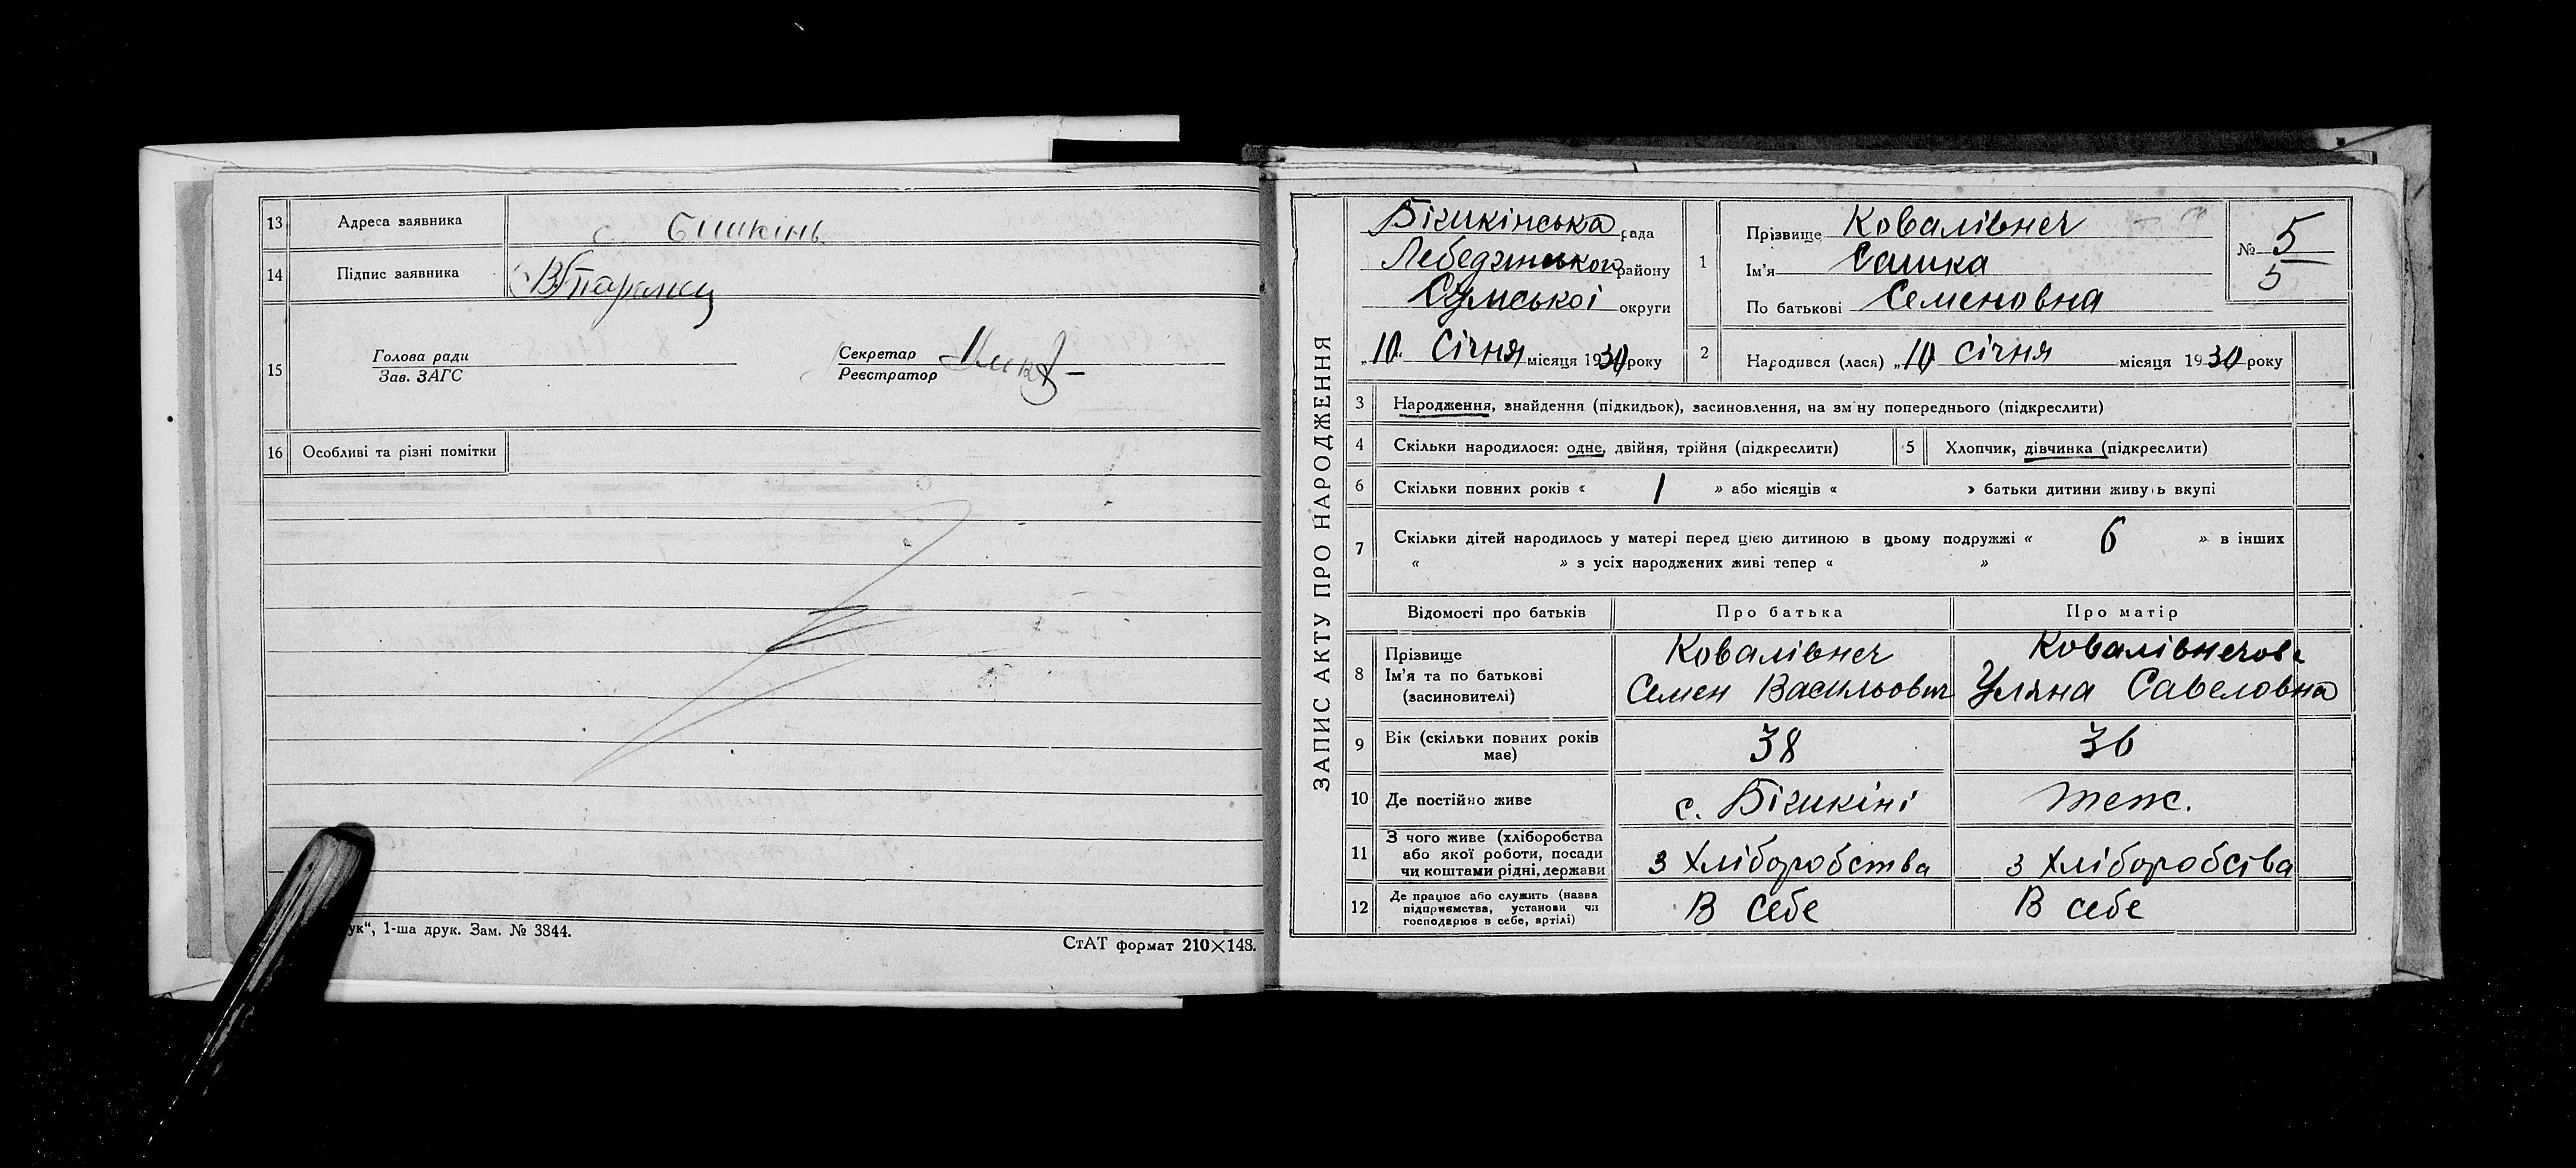 13 Адреса заявника с. Бишкінь
14 Підпис заявника
15 Голова ради
Зав. ЗАГС
Секретар
Реєстратор
16 Особливі та різні помітки
ук“, 1-ша друк. Зам. № 3844.
СтАТ формат 210×148.
ЗАПИС АКТУ ПРО НАРОДЖЕННЯ
Бішкінська рада
Лебединського району
Сумської округи
„10“ Січня місяця 1930 року
1 Прізвище Ковалівнеч
Ім'я Сашка
По батькові Семеновна
№ 5
5
2 Народився (лася) „10 Січня місяця 1930 року
3 Народження, знайдення (підкидьок), засиновлення, на зм ну попереднього (підкреслити)
4 Скільки народилося: одне, двійня, трійня (підкреслити) 5 Хлопчик, дівчинка (підкреслити)
6 Скільки повних років « 1 » або місяців « » батьки дитини живуть вкупі
7 Скільки дітей народилось у матері перед цією дитиною в цьому подружжі « 6 » в інших
« » з усіх народжених живі тепер « »
Відомості про батьків Про батька Про матір
8 Прізвище Ковалівнеч Ковалівнечова
Ім'я та по батькові Семен Васильович Уляна Савеловна
(засиновителі)
9 Вік (скільки повних років 38 36
має)
10 Де постійно живе с. Бішкіні теж.
11 З чого живе (хліборобства
або якої роботи, посади
чи коштами рідні, держави з Хліборобства з Хліборобства
12 Де працює або служить (назва
підприємства, установи чи В себе В себе
господарює в себе, артілі)